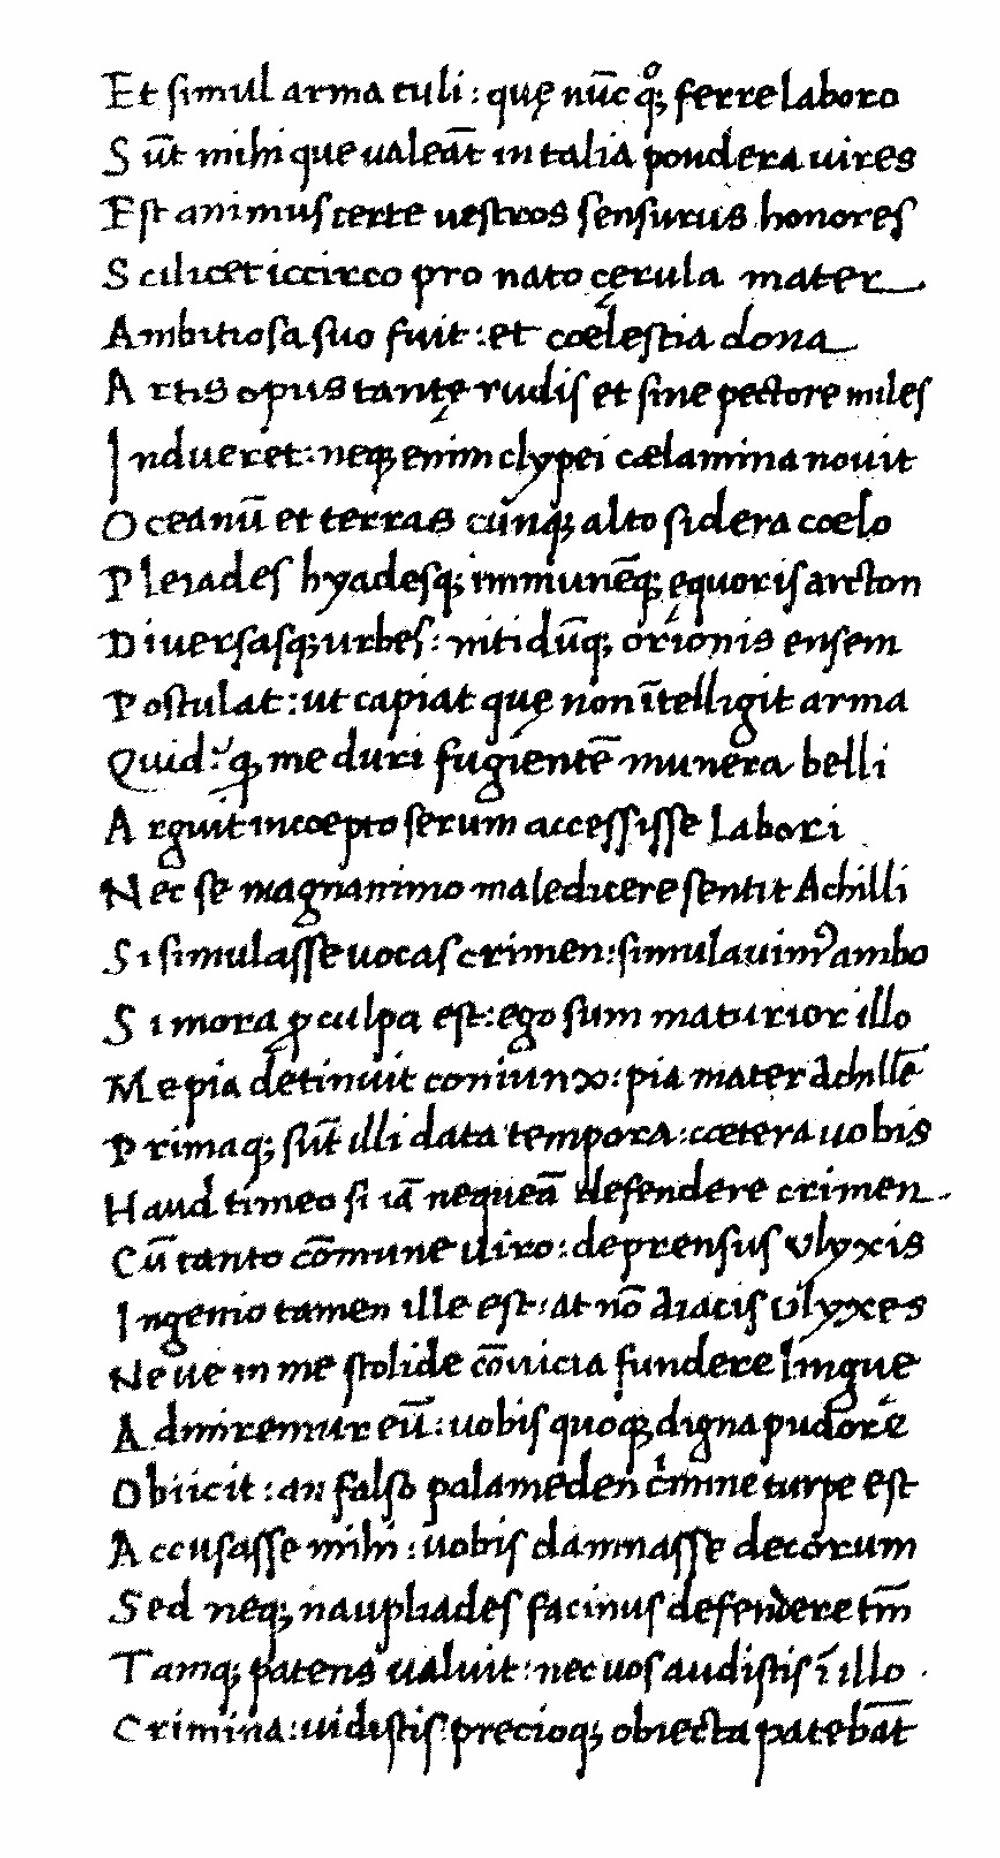 Et simul arma tuli : quę nūc qͦꝫ ferre laboro
Sūt mihi que ualeāt in talia pondera uires
Est animus certe uestros sensurus honores
Scilicet iccirco pro nato cęrula mater
Ambitiosa suo fuit : et cœlestia dona
Artis opus tantę rudis et sine pectore miles
Indueret : neqꝫ enim clypei cælamina nouit
Oceanū et terras cūnqꝫ alto sidera cœlo
Pleiades hyadesqꝫ immunēqꝫ ęquoris arcton
Diuersasqꝫ urbes : nitidūqꝫ orionis ensem
Postulat : ut capiat quę non ītelligit arma
Quid? qꝫ me duri fugientē munera belli
Arguit incœpto serum accessisse labori
Nec se magnanimo maledicere sentit Achilli
Si simulasse uocas crimen : simulauimꝰ ambo
Si mora ꝓ culpa est : ego sum maturior illo
Me pia detinuit coniunx : pia mater Achillē
Primaqꝫ sūt illi data tempora : cœtera uobis
Haud timeo si iā nequeā defendere crimen
Cū tanto cōmune uiro : deprensus Vlyxis
Ingenio tamen ille est : at nō Aiacis Vlyxes
Neue in me stolide cōuicia fundere linguę
Admiremur eū : uobis quoqꝫ digna pudore
Obiicit : an falso palameden cͥmine turpe est
Accusasse mihi : uobis damnasse decorum
Sed neqꝫ naupliades facinus defendere tm̄
Tamqꝫ patens ualuit : nec uos audistis ī illo
Crimina : uidistis precioqꝫ obiecta patebāt